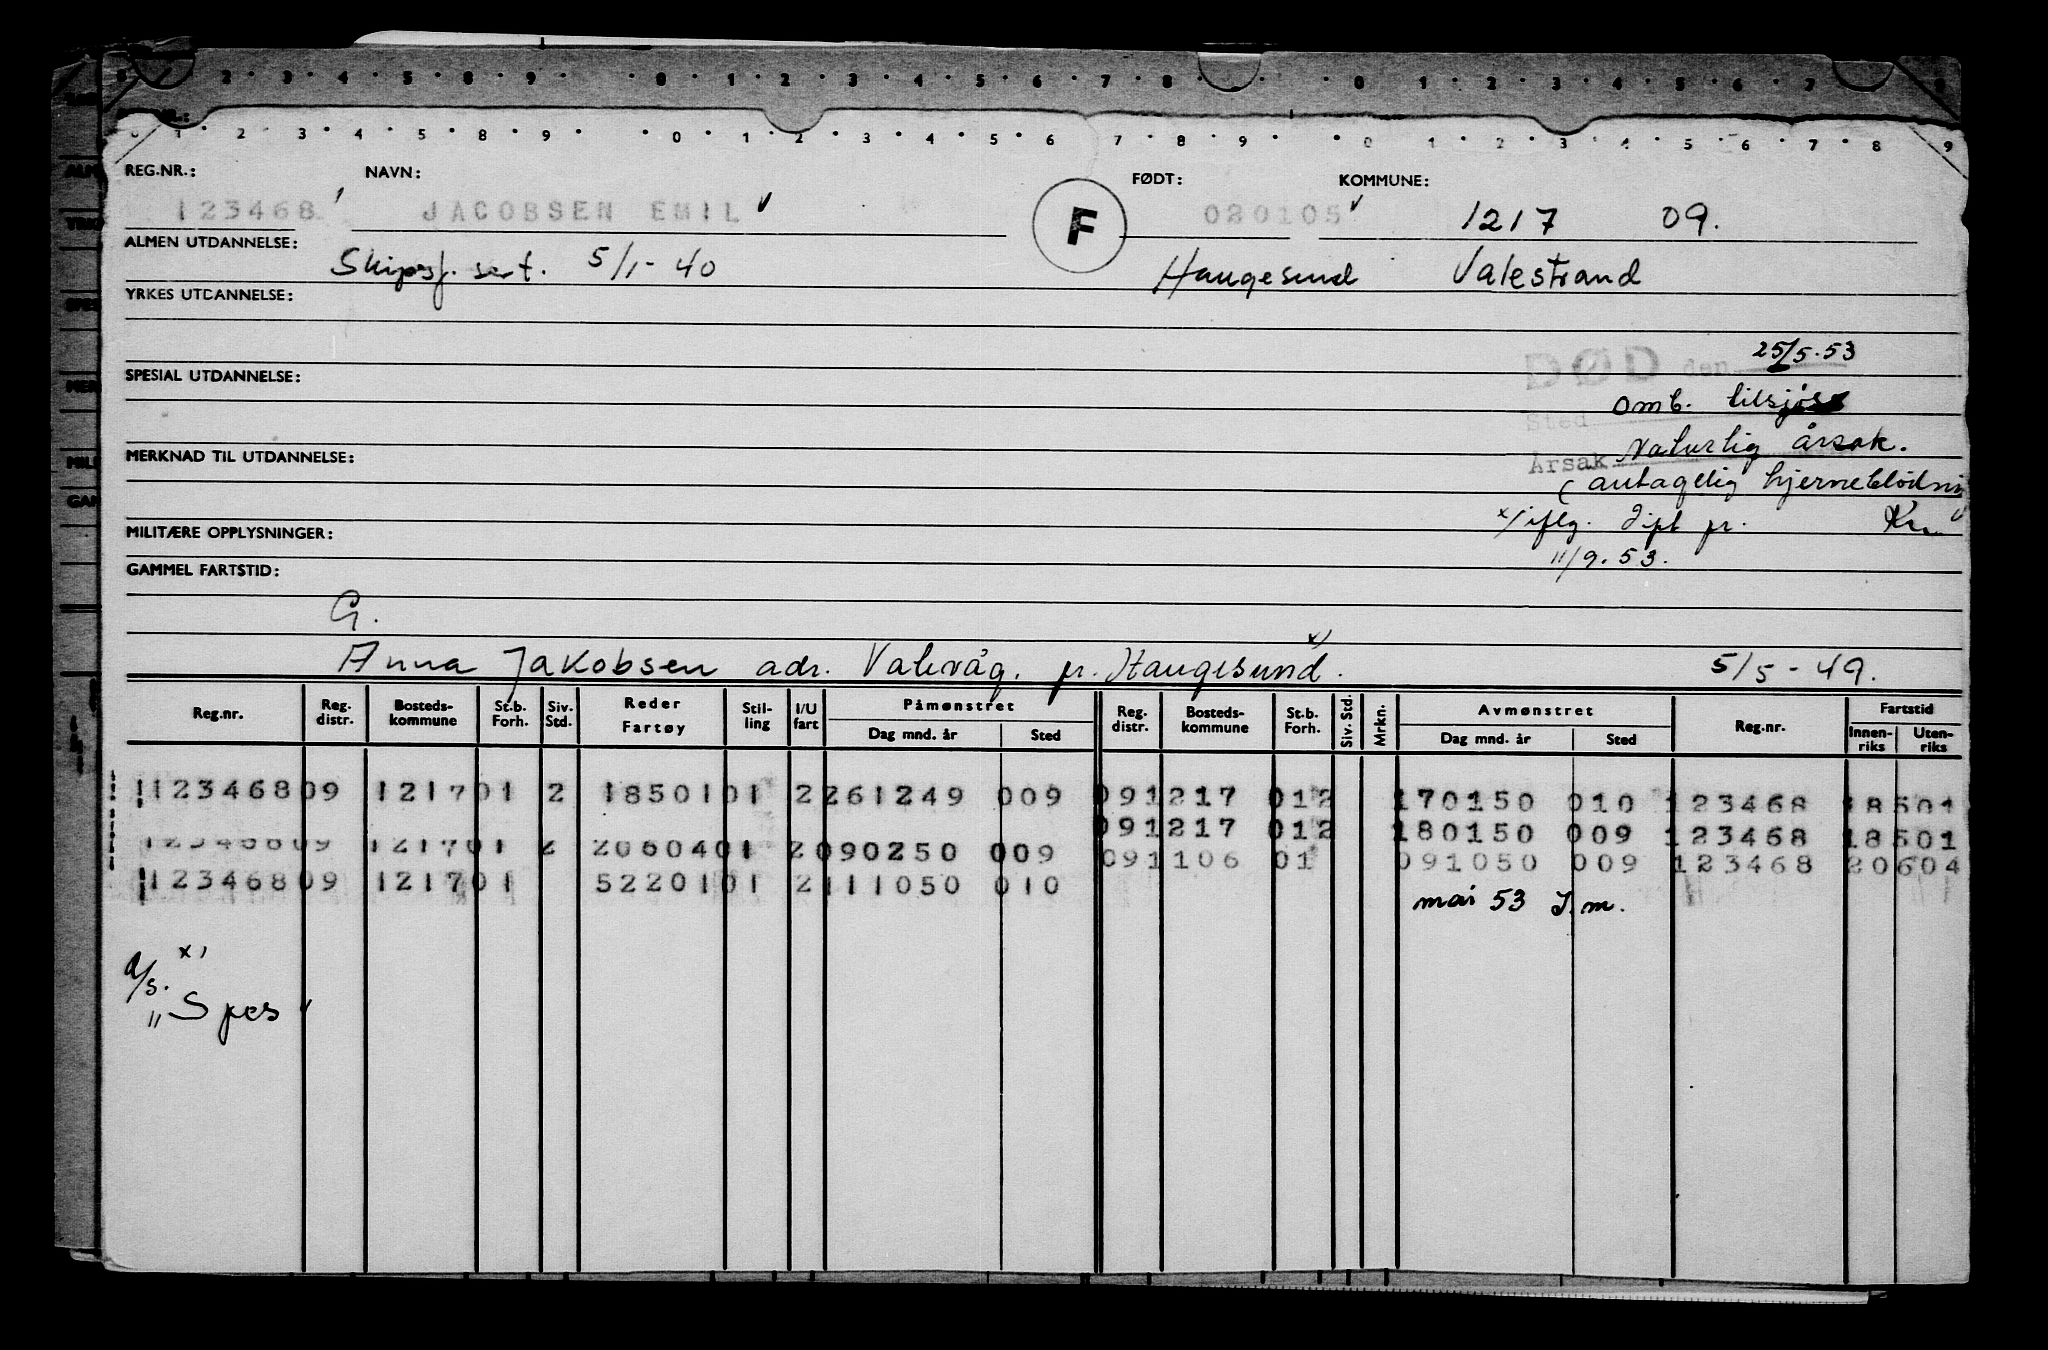 0 2 3 4 5 8 9 0 1 2 3 4 5 6 7 8 0 1 2 3 4 5 6 7 9
1 2 3 4 5 8 9 0 1 2 3 4 5 6 7 8 9 0 1 2 3 4 5 6 7 8 9
REG.NR.: NAVN: FØDT: KOMMUNE:
123468 JACOBSEN EMIL F 020105 1217 09.
ALMEN UTDANNELSE: Skipsf. sert. 5/1-40 Haugesund Valestrand
YRKES UTDANNELSE:
DØD den 25/5.53
SPESIAL UTDANNELSE:
Sted omb. tilsjøs
Årsak Naturlig årsak.
MERKNAD TIL UTDANNELSE:
(antagelig hjerneblødning
x) iflg. Dipl pr.
MILITÆRE OPPLYSNINGER:
11/9.53.
GAMMEL FARTSTID:
G.
Anna Jakobsen adr. Valevåg. pr. Haugesund x). 5/5-49.
Reg.nr. Reg. distr. Bosteds-kommune St.b. Forh. Siv. Std. Reder Fartøy Stil-ling I/U fart Påmønstret Dag mnd. år Sted Reg. distr. Bosteds-kommune St.b. Forh. Siv. Std. Mrkn. Avmønstret Dag mnd. år Sted Reg.nr. Fartstid Innen-riks Uten-riks
123468 09 1217 01 2 18501 01 2 261249 009 09 1217 01 2 170150 010 123468 18501
09 1217 01 2 180150 009 123468 18501
123468 09 1217 01 2 20604 01 2 090250 009 09 1106 01 091050 009 123468 20604
123468 09 1217 01 52201 01 2 111050 010 mai 53 I.m.
x)
a/s.
"Spes"